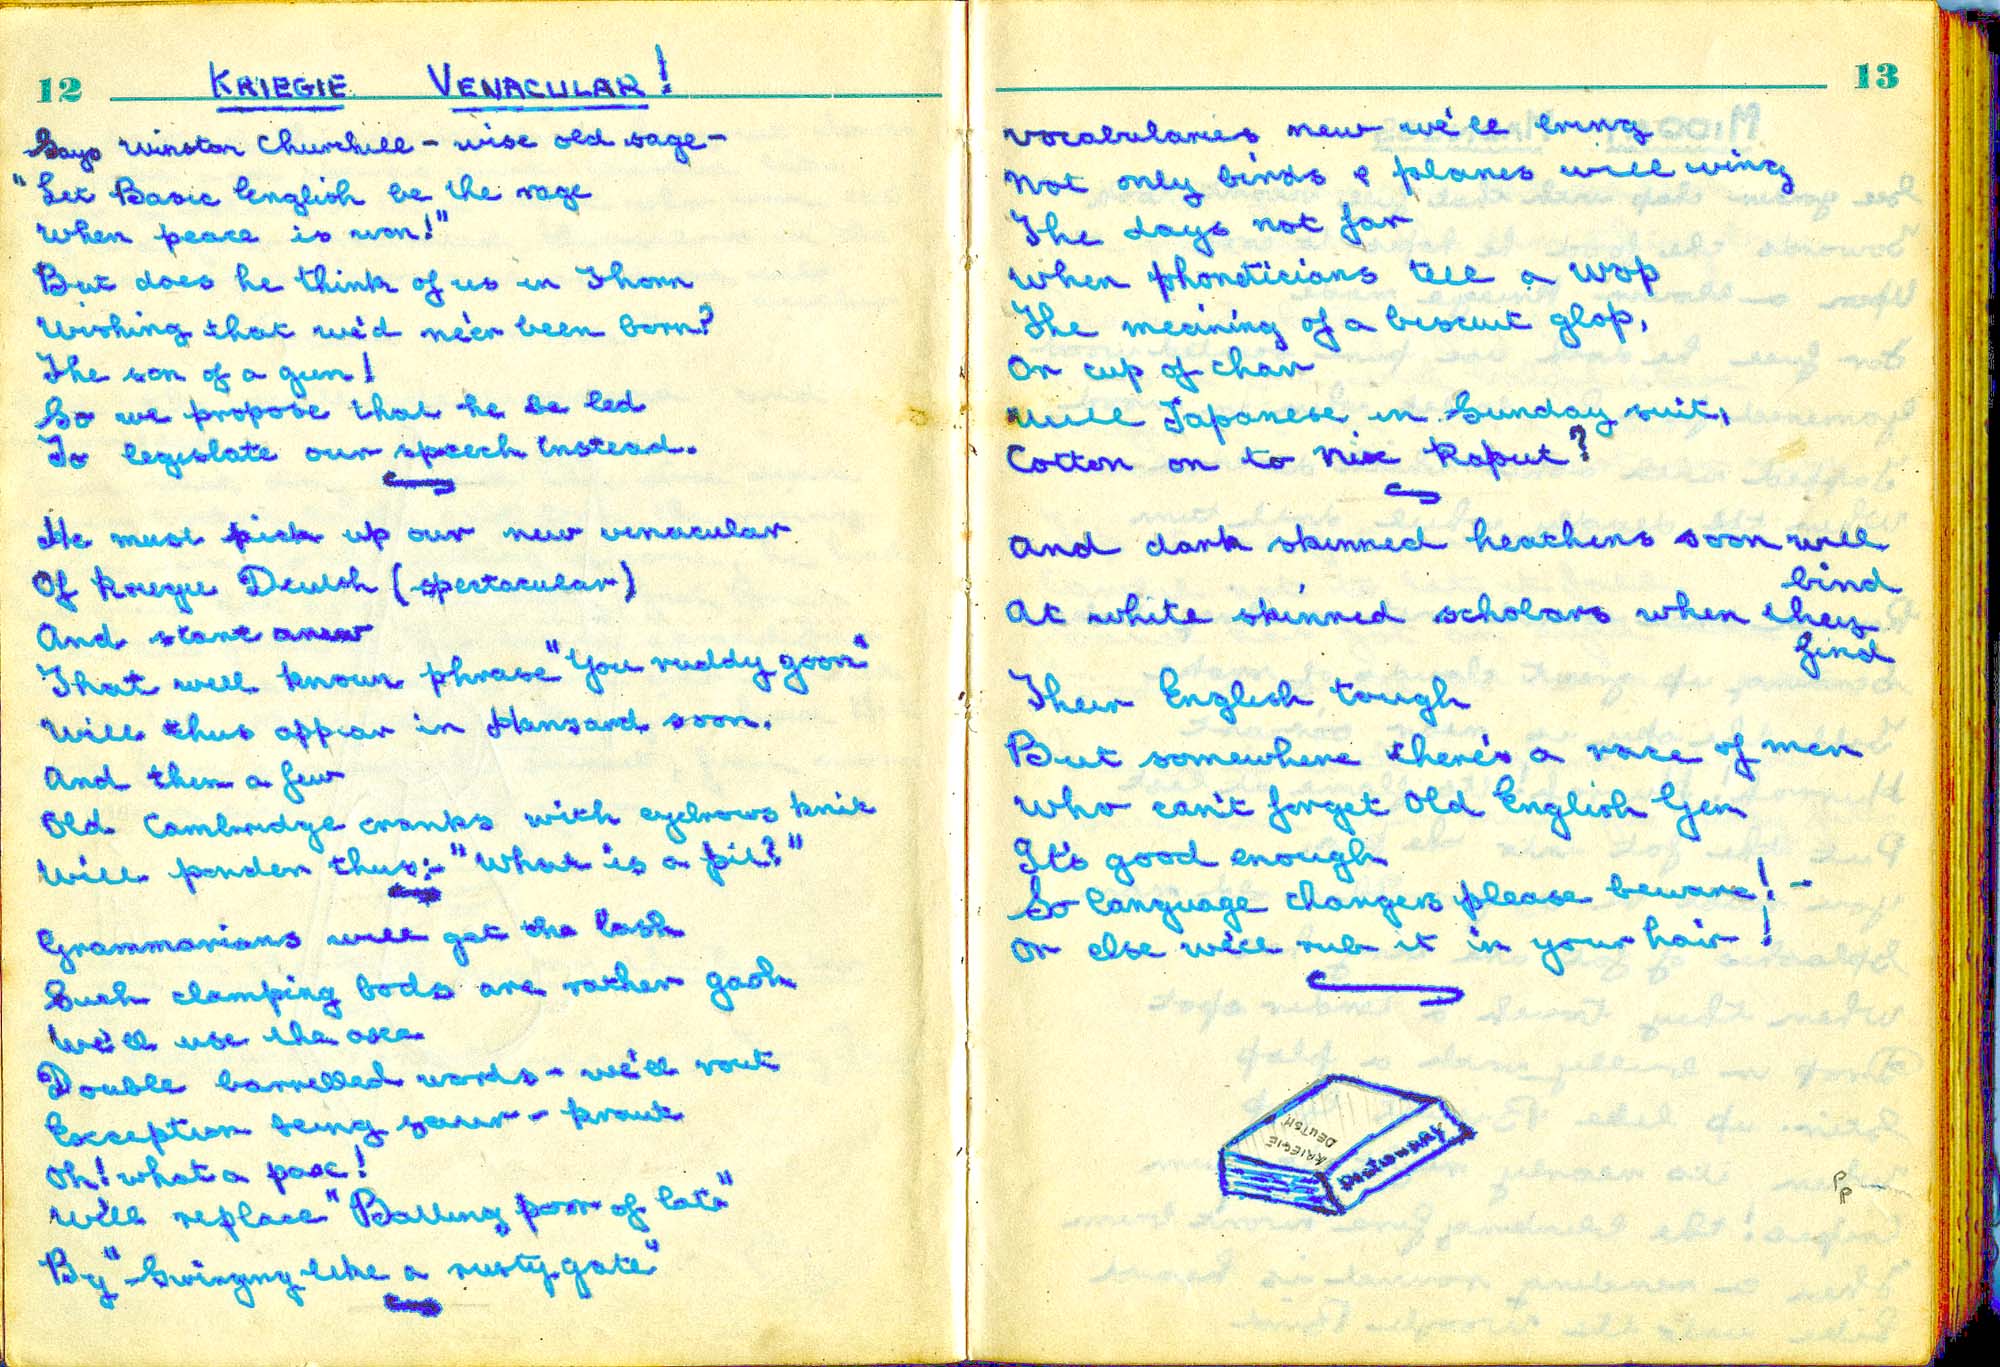 12
KRIEGIE VENACULAR!
Says Winston Churchill - wise old sage -
"Let Basic English be the rage
When peace is won!"
But does he think of us in Thorn
Wishing that we'd ne'er been born?
The son of a gun!
So we propose that he be led
To legislate our speech instead.
He must pick up our new venacular
Of Kriegie Deutsh (spectacular)
And start anew
That well known phrase "You ruddy goon"
Will thus appear in Hansard soon.
And then a few
Old Cambridge cranks with eyebrows knit
Will ponder thus:- "What is a pit?"
Grammarians will get the lash
Such clamping bods are rather gash
We'll use the axe
Double barrelled words - we'll rout
Exception being sauer - kraut
Oh! what a pax!
We'll replace "Batting poor of late"
By "Swinging like a rusty gate"
13
Vocabularies new we'll bring
Not only birds & planes will wing
The days not far
When phoneticians tell a Wop
The meaning of a biscuit glop,
Or cup of char
Will Japanese in Sunday suit,
Cotton on to Nix Kaput?
And dark skinned heathens soon will
bind
At white skinned scholars when they
find
Their English tough
But somewhere there's a race of men
Who can't forget Old English Gen
It's good enough
So language changers please beware! -
Or else we'll rub it in your hair!
KRIEGIE
DEUTSH
DICTIONARY
PP